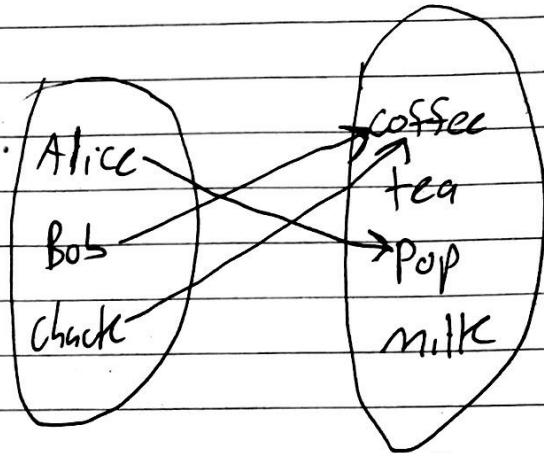 Alice
Bob
Chuck
coffee
tea
Pop
milk